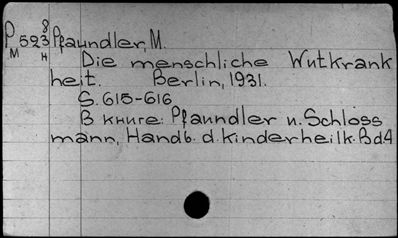 8
P 523 Pfaundler, M.
M H
Die menschliche Wutkrank
heit. Berlin, 1931.
S. 615-616
В книге: Pfaundler u. Schloss
mann, Handb. d. Kinderheilk. Bd4